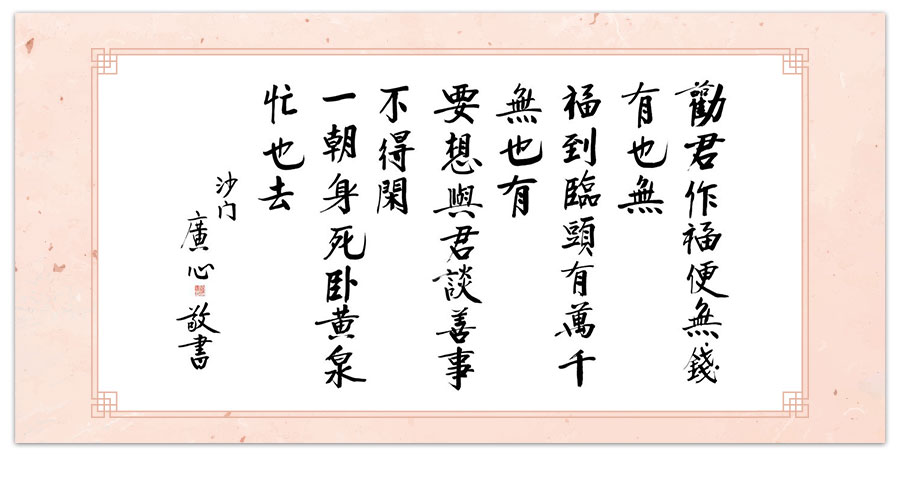 勸君作福便無錢
有也無
福到臨頭有萬千
無也有
要想與君談善事
不得閑
一朝身死卧黄泉
忙也去
沙门
廣心
敬書